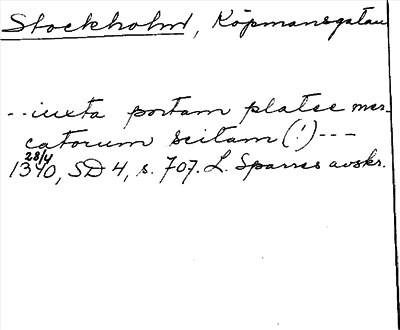 Stockholm, Köpmansgatan
--iuxta portam platee mer-
catorum scitam (!)---
28/4
1340, SD 4, s. 707. L. Sparres avskr.